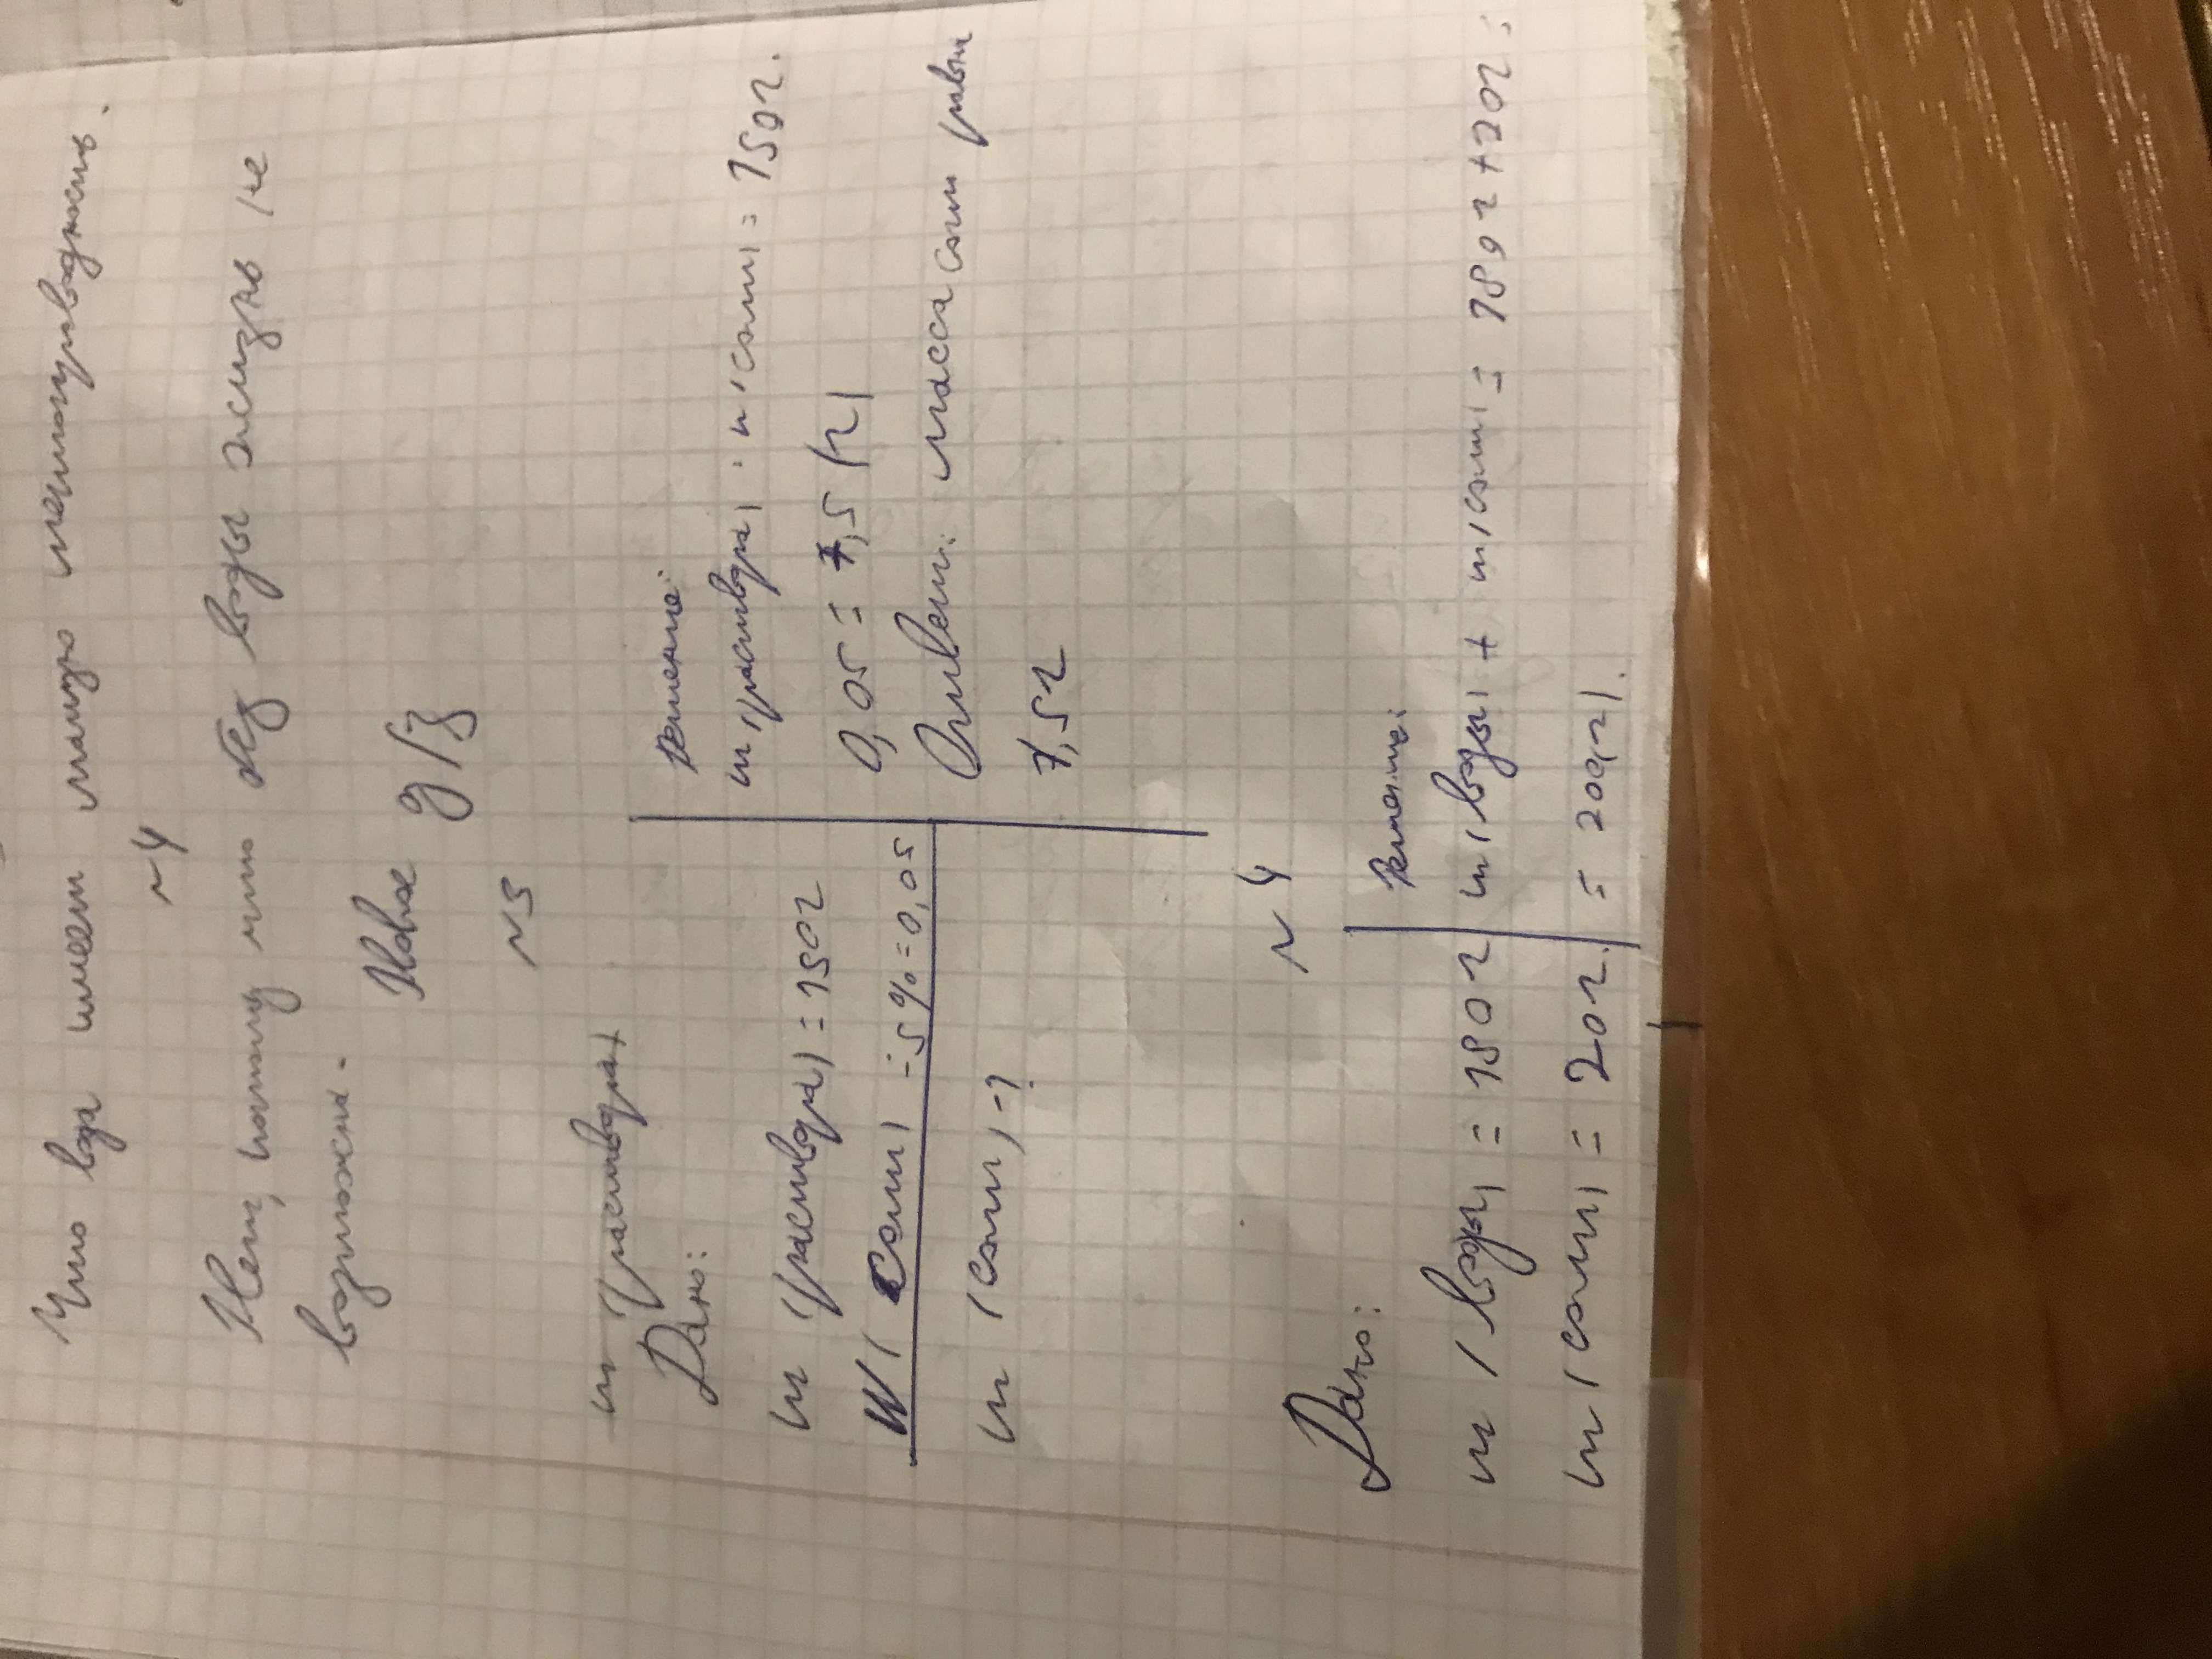 Что вода имеет малую теплопроводность.
N4
Нет, потому что без воды жизнь не
возможна.
Новое д/з
N3
m (раствора)
Дано:
m (раствора) = 150г
W (соли) = 5% = 0,05
m (соли) - ?
Решение:
m (раствора) · w (соли) = 150г ·
0,05 = 7,5 (г)
Ответ: масса соли равна
7,5г
N4
Дано:
m (воды) = 180г
m (соли) = 20г.
Решение:
m (воды) + m (соли) = 180г + 20г =
= 200(г).